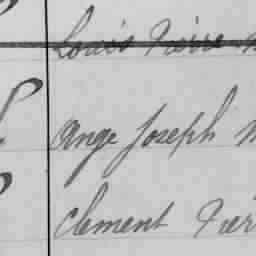 Louis Pierre
Ange Joseph
Clement Pier